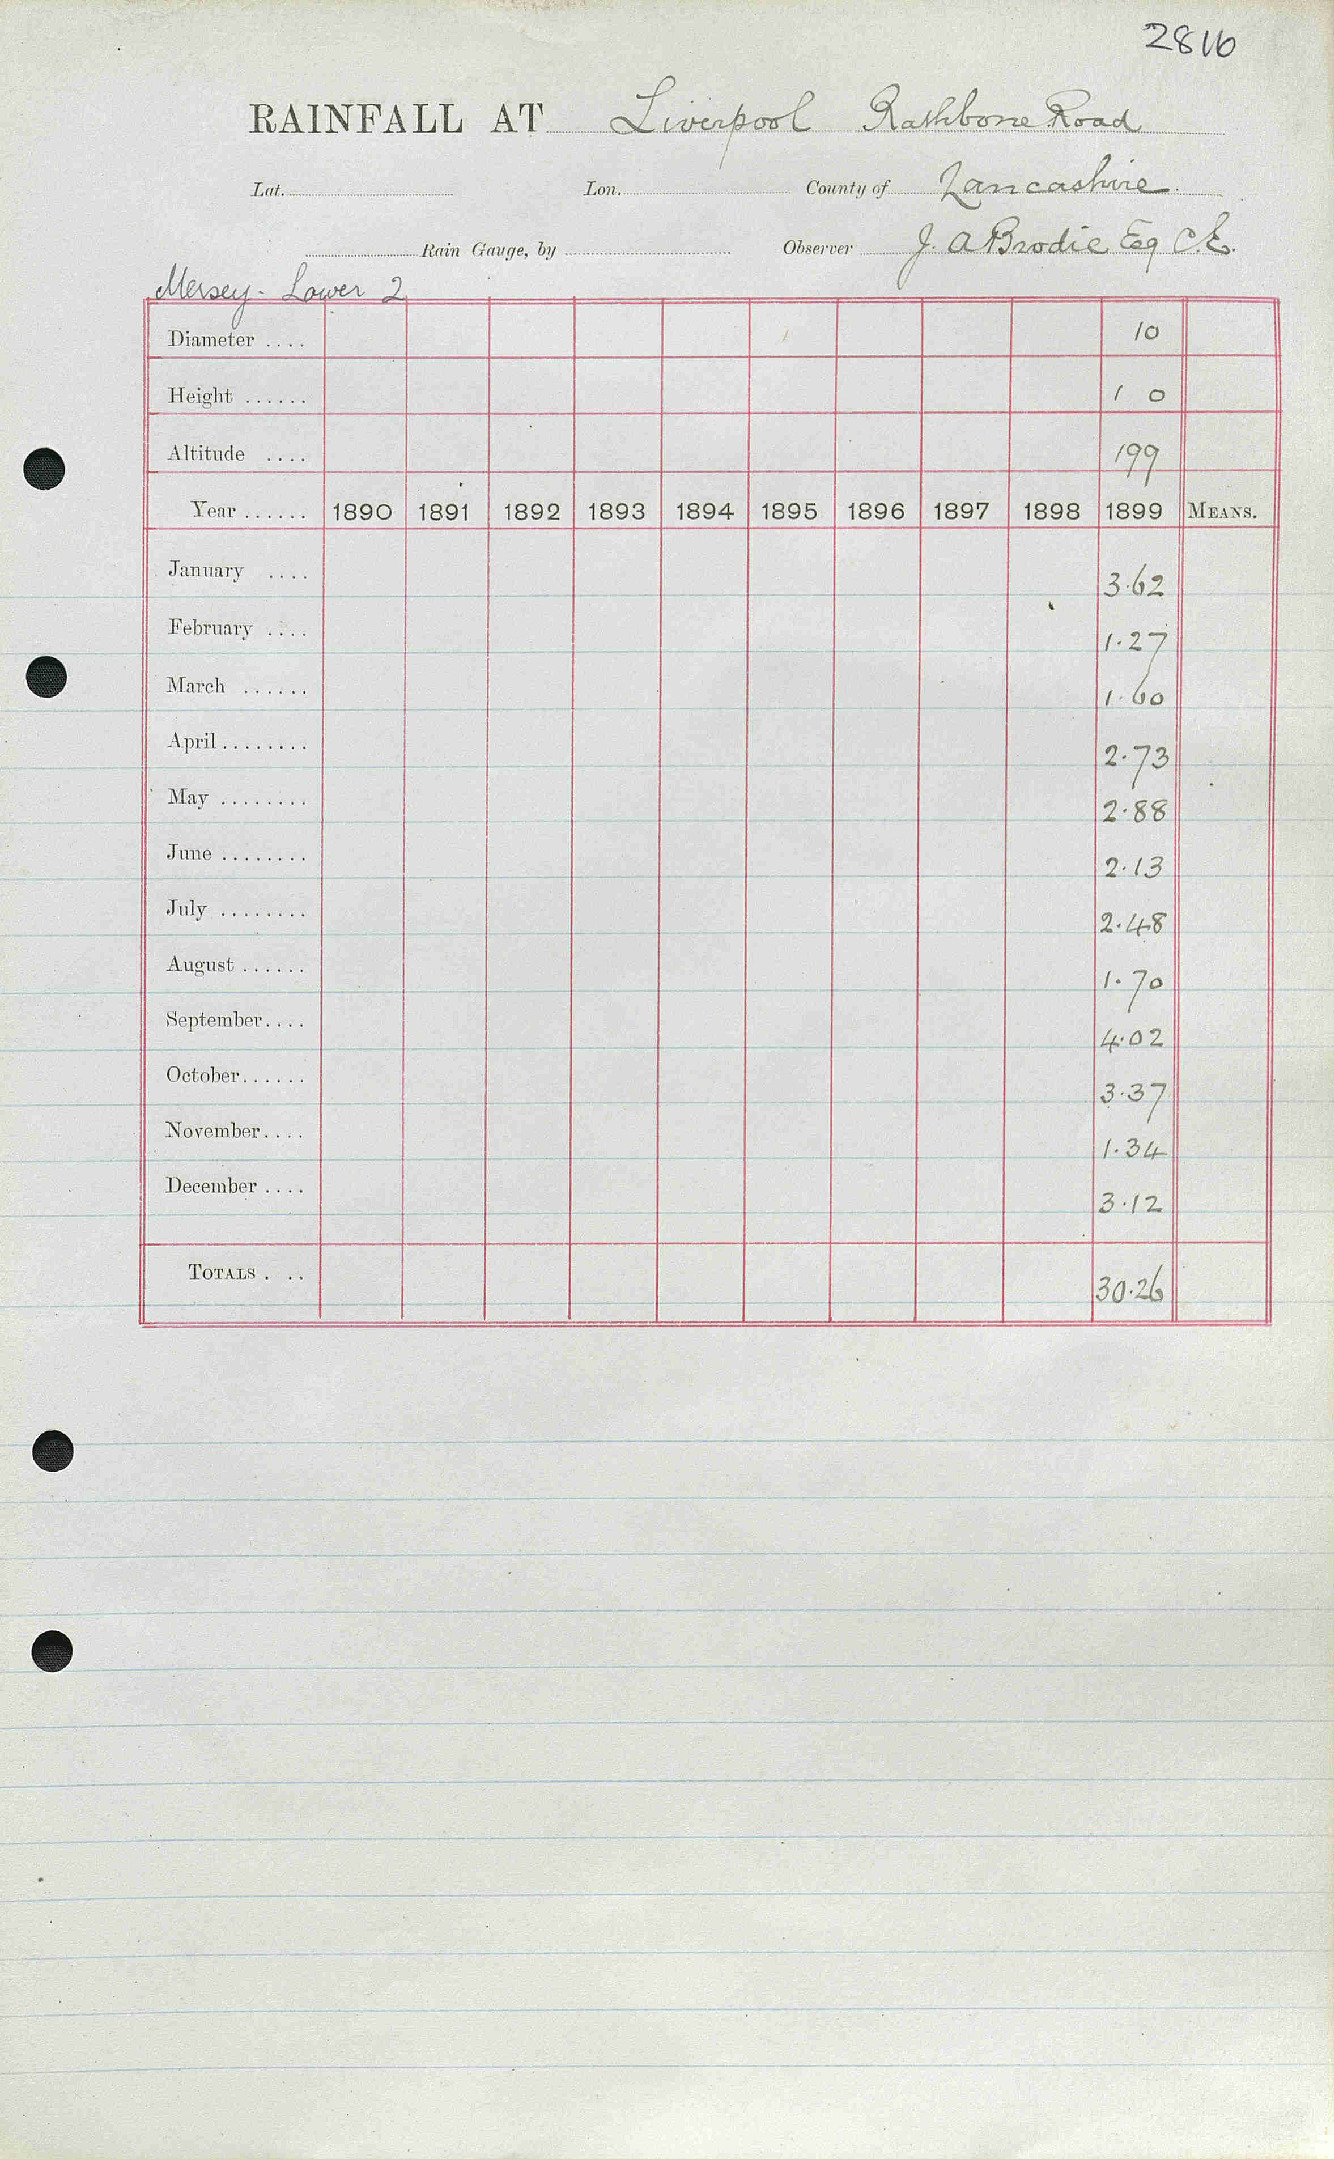 2816
RAINFALL AT Liverpool Rathbone Road
Lat. Lon. County of Lancashire.
Rain Gauge, by Observer J. A Brodie Esq C.E.
Mersey - Lower 2
Diameter .... 10
Height ...... 1 0
Altitude .... 199
Year ...... 1890 1891 1892 1893 1894 1895 1896 1897 1898 1899 MEANS.
January .... 3.62
February .... 1.27
March ...... 1.60
April ........ 2.73
May ........ 2.88
June ........ 2.13
July ........ 2.48
August ...... 1.70
September .... 4.02
October ...... 3.37
November .... 1.34
December .... 3.12
TOTALS . .. 30.26